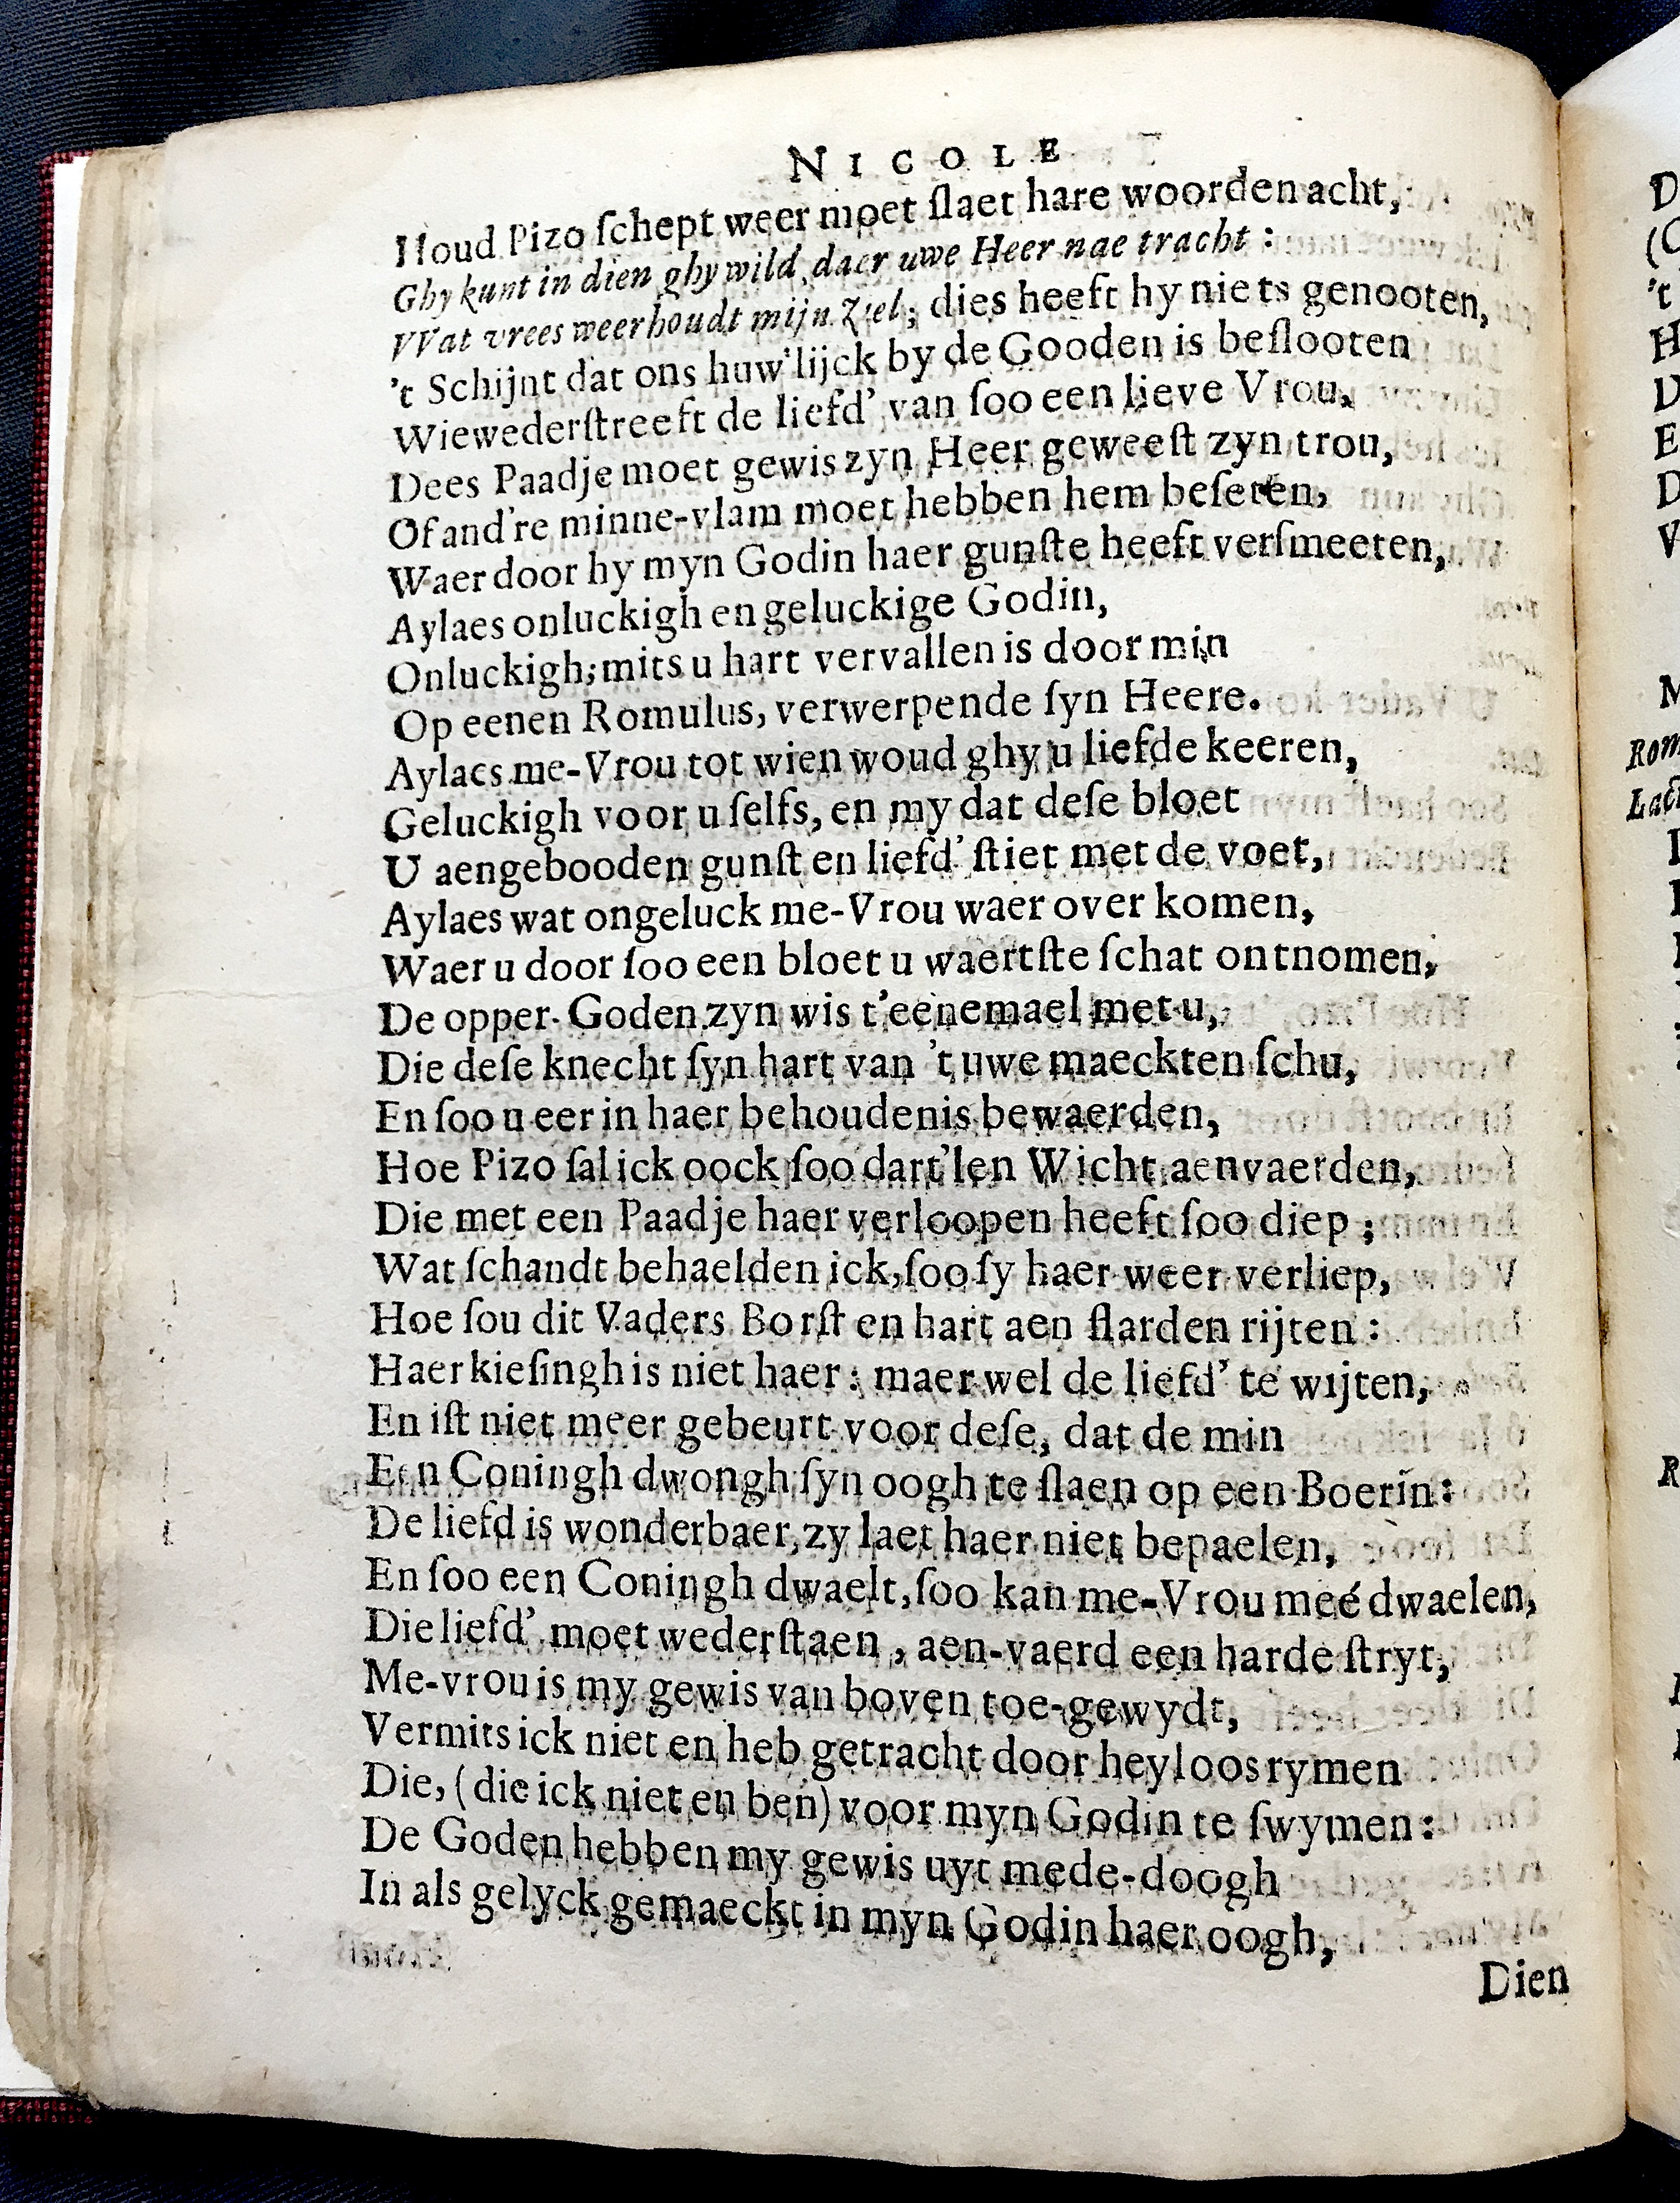 NICOLE
Houd Pizo ſchept weer moet ſlaet hare woorden acht,
Ghy kunt in dien ghy wild, daer uwe Heer nae tracht :
VVat vrees weerhoudt mijn Ziel; dies heeft hy niets genooten,
't Schijnt dat ons huw'lijck by de Gooden is beſlooten
Wie wederſtreeft de liefd' van ſoo een lieve Vrou,
Dees Paadje moet gewis zyn Heer geweeſt zyn trou,
Of and're minne-vlam moet hebben hem beſeten,
Waer door hy myn Godin haer gunſte heeft verſmeeten,
Aylaes onluckigh en geluckige Godin,
Onluckigh; mits u hart vervallen is door min
Op eenen Romulus, verwerpende ſyn Heere.
Aylacs me-Vrou tot wien woud ghy u liefde keeren,
Geluckigh voor u ſelfs, en my dat deſe bloet
U aengebooden gunſt en liefd' ſtiet met de voet,
Aylaes wat ongeluck me-Vrou waer over komen,
Waer u door ſoo een bloet u waertſte ſchat ontnomen,
De opper-Goden zyn wis t'eenemael met u,
Die deſe knecht ſyn hart van 't uwe maeckten ſchu,
En ſoo u eer in haer behoudenis bewaerden,
Hoe Pizo ſal ick oock ſoo dart'len Wicht aenvaerden,
Die met een Paadje haer verloopen heeft ſoo diep ;
Wat ſchandt behaelden ick, ſoo ſy haer weer verliep,
Hoe ſou dit Vaders Borſt en hart aen flarden rijten :
Haer kieſingh is niet haer : maer wel de liefd' te wijten,
En iſt niet meer gebeurt voor deſe, dat de min
Een Coningh dwongh ſyn oogh te ſlaen op een Boerin:
De liefd is wonderbaer, zy laet haer niet bepaelen,
En ſoo een Coningh dwaelt, ſoo kan me-Vrou meé dwaelen,
Die liefd' moet wederſtaen, aen-vaerd een harde ſtryt,
Me-vrou is my gewis van boven toe-gewydt,
Vermits ick niet en heb getracht door heyloos rymen
Die, (die ick niet en ben) voor myn Godin te ſwymen:
De Goden hebben my gewis uyt mede-doogh
In als gelyck gemaeckt in myn Godin haer oogh,
Dien